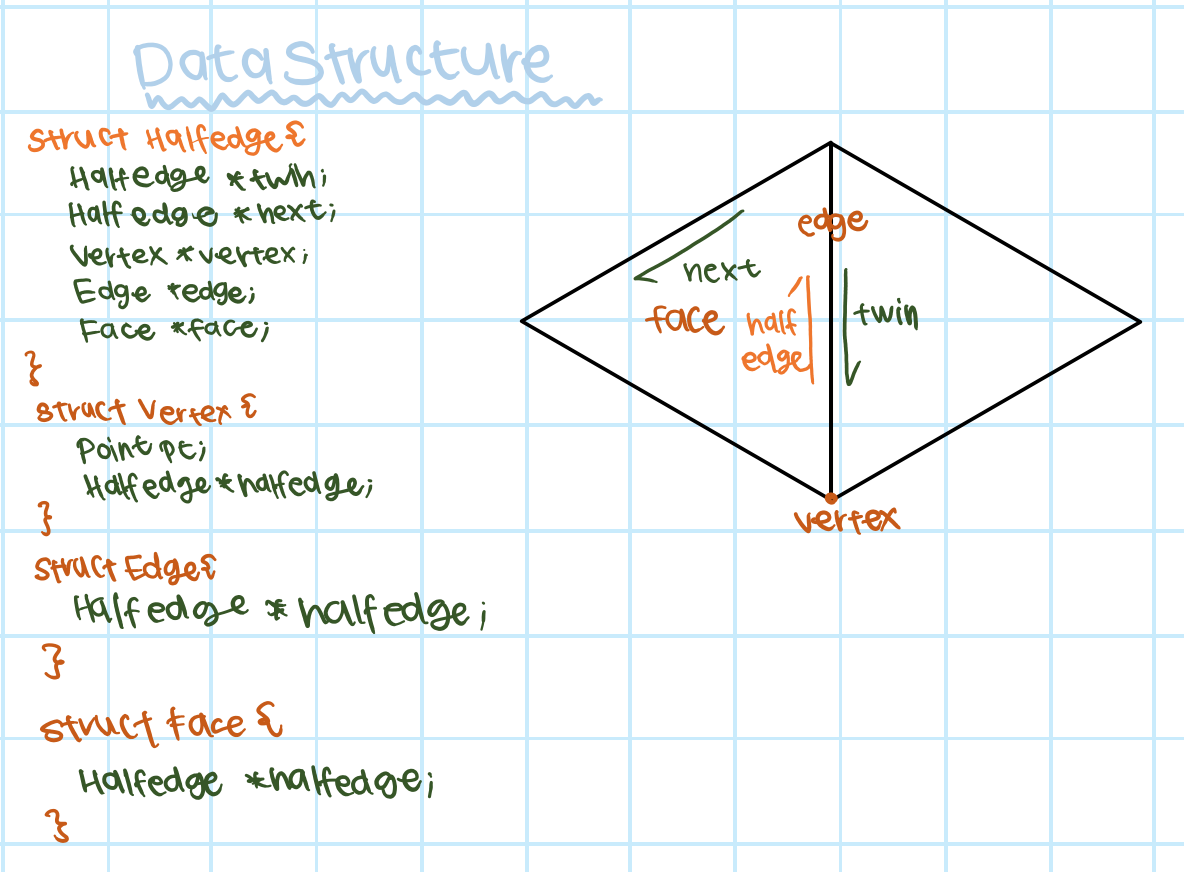 Data Structure
struct Halfedge {
Halfedge *twin;
Halfedge *next;
Vertex *vertex;
Edge *edge;
Face *face;
}
struct Vertex {
Point pt;
Halfedge *halfedge;
}
struct Edge {
Halfedge *halfedge;
}
struct Face {
Halfedge *halfedge;
}
edge
next
face
half
edge
twin
vertex